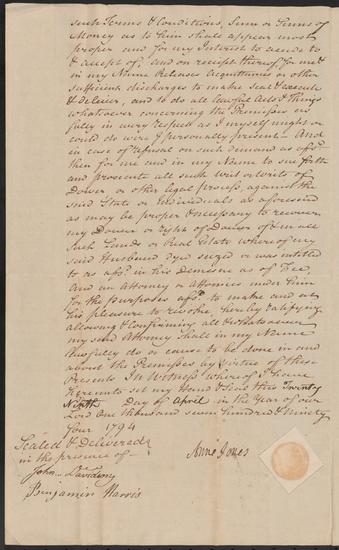 such Terms & Conditions, Sum or Sums of
Money as to him shall appear most
proper and for my Interest to accede to
& accept of, and on receipt thereof for me &
in my Name Releases Acquittances or other
sufficient discharges to make Seal & execute
& deliver, and to do all lawful Acts & Things
whatsoever concerning the Premisses as
fully in every respect as I myself might or
could do were I personally present - And
in case of refusal on such demand as afsd
then for me and in my Name to sue forth
and prosecute all such Writ or Writs of
Dower or other legal process, against the
said State or Individuals as aforesaid
as may be proper & necessary to recover
my Dower or right of Dower of & in all
such Lands or Real Estate whereof my
said Husband dyed seized or was intitled
to as afsd in his demesne as of Fee,
And an Attorney or Attornies under him
for the purposes afsd to make and at
his pleasure to revoke, hereby ratifying
allowing & Confirming all & whatsoever
my said Attorney shall in my Name
lawfully do or cause to be done in and
about the Premisses by Virtue of these
Presents In Witness whereof I have
hereunto set my Hand & Seal this Twenty
Ninth Day of April in the Year of our
Lord One thousand seven hundred & Ninety
four 1794
Sealed & Delivered
in the presence of
Anne Jones
John Davidson
Benjamin Harris